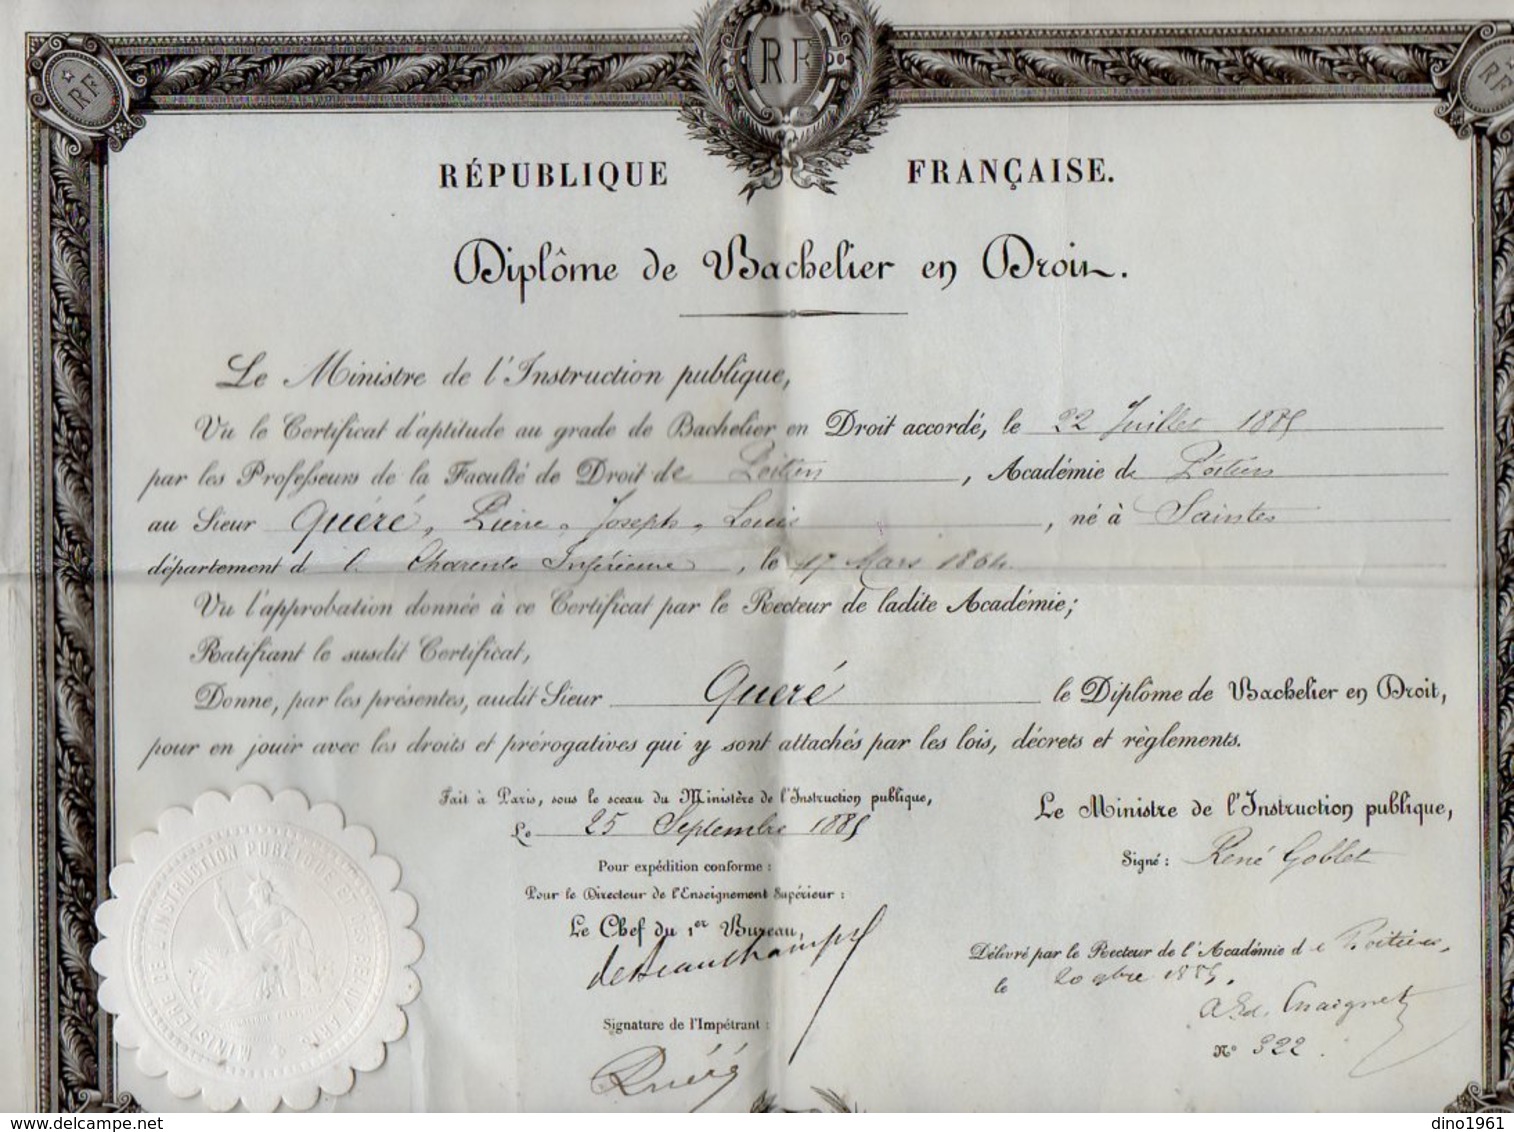 RF
RF
RF
RÉPUBLIQUE FRANÇAISE.
Diplôme de Bachelier en Droit.
Le Ministre de l'Instruction publique,
Vu le Certificat d'aptitude au grade de Bachelier en Droit accordé, le 22 Juillet 1885
par les Professeurs de la Faculté de Droit de Poitiers, Académie de Poitiers
au Sieur Quéré, Pierre, Joseph, Louis, né à Saintes
département d l Charente Inférieure, le 17 Mars 1864
Vu l'approbation donnée à ce Certificat par le Recteur de ladite Académie;
Ratifiant le susdit Certificat,
Donne, par les présentes, audit Sieur Queré le Diplôme de Bachelier en Droit,
pour en jouir avec les droits et prérogatives qui y sont attachés par les lois, décrets et règlements.
Fait à Paris, sous le sceau du Ministère de l'Instruction publique,
Le 25 Septembre 1885
Pour expédition conforme :
Pour le Directeur de l'Enseignement Supérieur :
Le Chef du 1er Bureau,
de Beauchamps
Signature de l'Impétrant :
Quéré
Le Ministre de l'Instruction publique,
Signé : René Goblet
Délivré par le Recteur de l'Académie de Poitiers,
le 20 obre 1885.
Ed. Chaignet
N° 322.
MINISTERE DE L'INSTRUCTION PUBLIQUE ET DES BEAUX ARTS
delcampe.net
dino1961